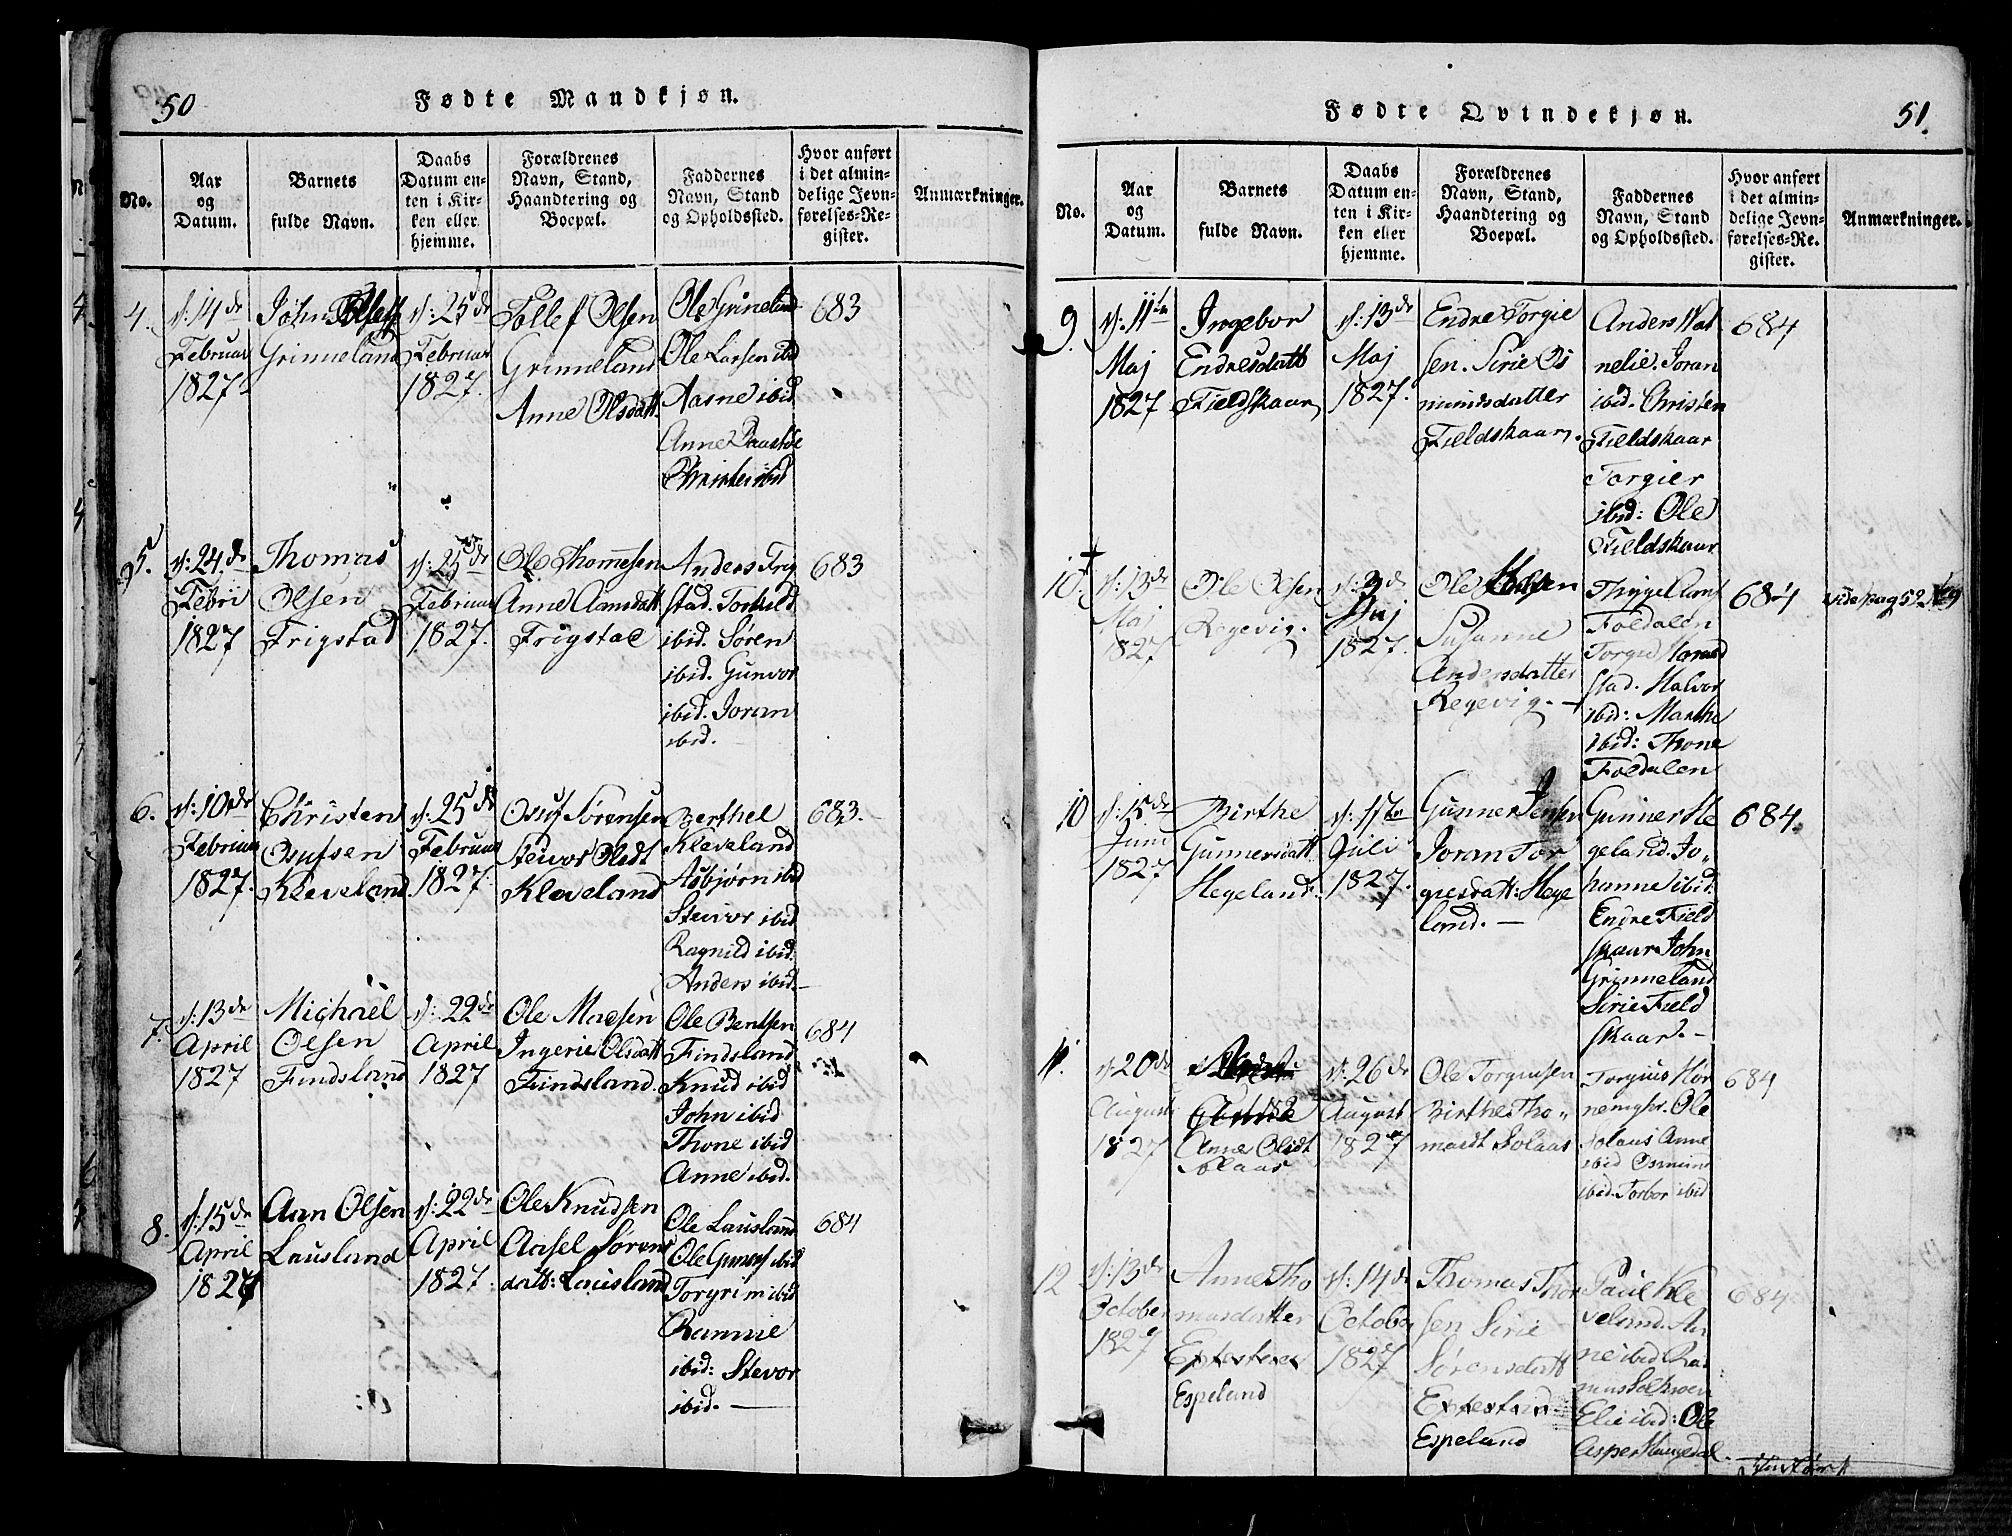 50
Fødte Mandkjøn.
No.
Aar
og
Datum.
Barnets
fulde Navn.
Daabs
Datum en-
ten i Kir-
ken eller
hjemme.
Forældrenes
Navn, Stand,
Haandtering og
Boepæl.
Faddernes
Navn, Stand
og Opholdssted.
Hvor anført
i det almin-
delige Jevn-
førelses-Re-
gister.
Anmærkninger.
4.
d: 14de
Februar
1827
John
Grinneland
d: 25de
Februar
1827.
Tollef Olsen
Grinneland
Anne Olsdatt
Ole Grineland
Ole Larsen ibid
Aasne ibid
Anne
ibid
683
5.
d: 24de
Febri
1827
Thomas
Olsen
Frigstad
d: 25de
Februar
1827.
Ole Thomesen
Anne Aansdatt
Frigstad
Anders Frig
stad. Torkild
ibid. Søren
ibid. Gunvor
ibid. Joran
ibid.
683
6.
d: 10de
Februar
1827.
Christen
Osufsen
Kleveland
d: 25de
Februar
1827.
Osuf Sørensen
Steivor Olsdt
Kleveland
Berthel
Kleveland
Asbjørn ibid
Steivor ibid
Ragnild ibid.
Anders ibid.
683.
7.
d: 13de
April
1827
Michael
Olsen
Findsland
d: 22de
April
1827
Ole Madsen
Ingerie Olsdatt
Findsland.
Ole Bentsen
Findsland
Knud ibid
John ibid
Thone ibid
Anne ibid.
684
8.
d: 15de
April
1827
Aan Olsen
Lausland
d: 22de
April
1827.
Ole Knudsen
Aasel Sørens
datt: Lausland
Ole Lausland
Ole Gunars ibid
Torgrim ibid
Rannie
ibid: Stevor
ibid.
684
51.
Fødte Qvindekjøn.
No.
Aar
og
Datum.
Barnets
fulde Navn.
Daabs
Datum en-
ten i Kir-
ken eller
hjemme.
Forældrenes
Navn, Stand,
Haandtering og
Boepæl.
Faddernes
Navn, Stand
og Opholdssted.
Hvor anført
i det almin-
delige Jevn-
førelses-Re-
gister.
Anmærkninger.
9.
d: 11te
Maj
1827
Ingebor
Endresdatt
Fieldskaar
d: 13de
Maj
1827.
Endre Torgie
sen. Sirie Os
mundsdatter
Fieldskaar.
Anders
nelie. Joran
ibid. Christen
Fieldskaar
Torgier
ibid: Ole
Fieldskaar
684
10.
d: 13de
Maj
1827
Ole Olsen
Regevig.
d: 3de
Maj
1827.
Ole
Susanne
Andersdatter
Regevig.
Foldalen
stad. Halvor
ibid: Marthe
ibid: Thone
Foldalen
684
vide pag 52 No 9
10
d. 15de
Juni
1827
Birthe
Gunnersdatt
Hegeland.
d: 1ste
Juli
1827.
Gunner Jensen
Joran Tor
giesdatt: Hege
land.
Gunner He
geland. Jo„
hanne ibid:
Endre Field
skaar John
Grinneland
Sirie Field
skaar.
684.
11.
d 20de
August
1827
Anne Olsdt
Solaas
d: 26de
August
1827
Ole Torgiusen
Birthe Tho„
masdt Solaas
Torgius Hør
Ole
Solaas Anne
ibid Osmund
ibid. Torbor ibid
684
12
d: 13de
October
1827
Anne Tho
masdatter
Espeland
d: 14de
October
1827
Thomas Thor
sen Sirie
Sørensdatt
Espeland
Paul Kle
veland. An
ne ibid Ras
mus
Elie ibid: Ole
684